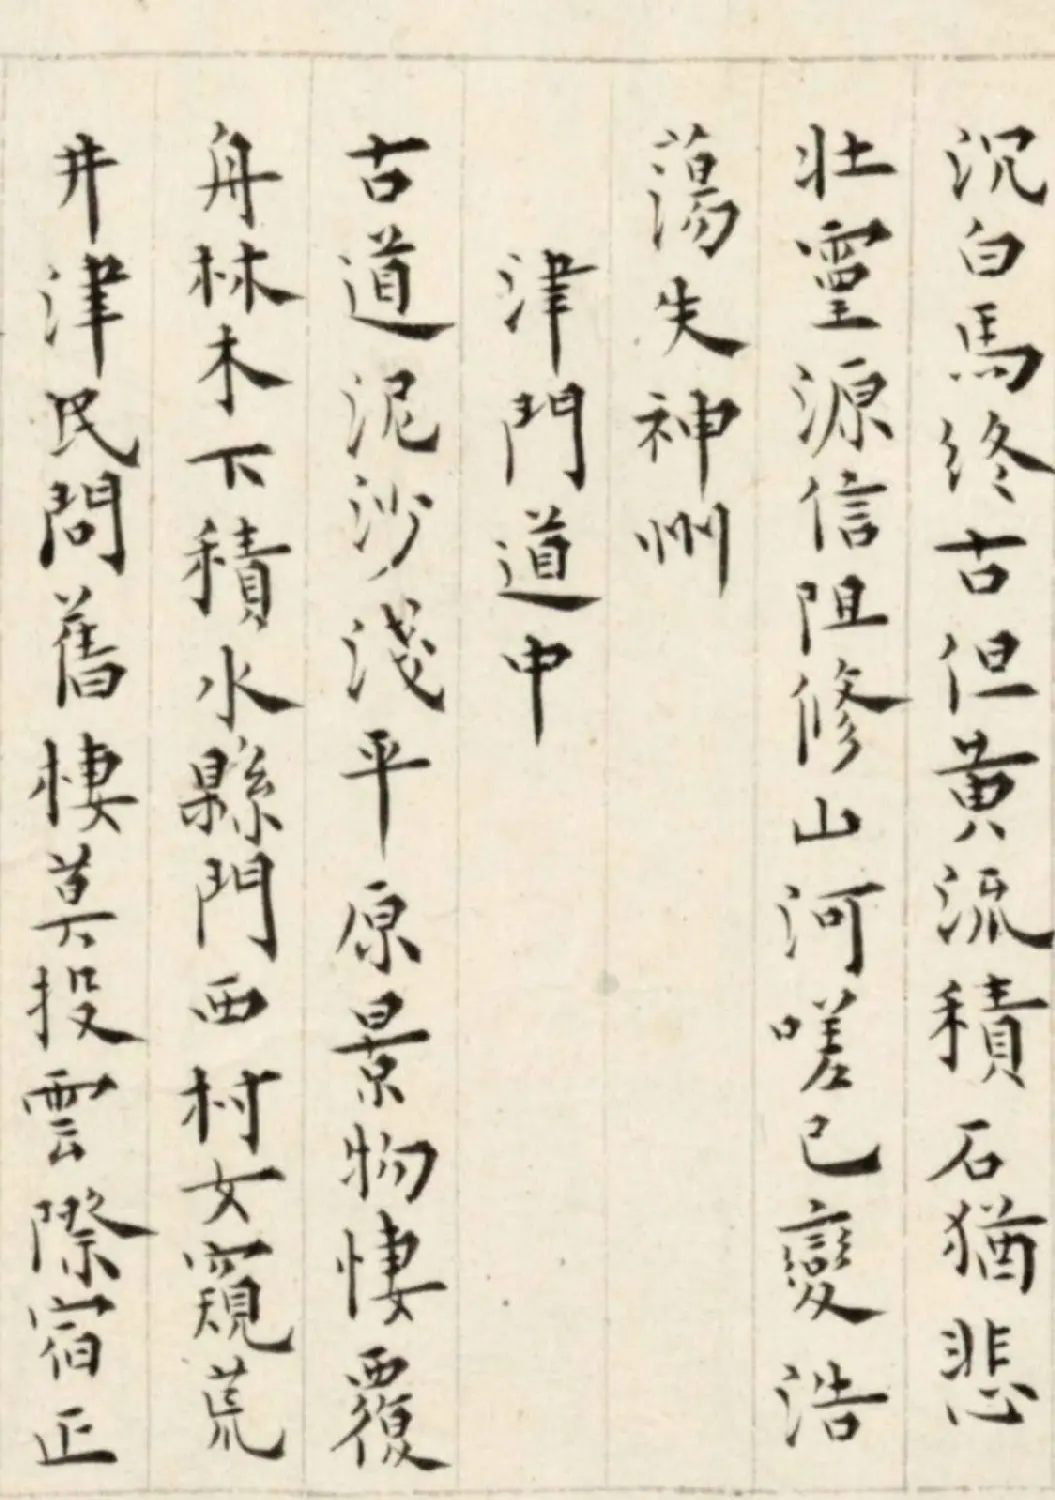 沉白馬終古但黄流積石猶悲
壯靈源信阻修山河嗟已變浩
蕩失神州
津門道中
古道泥沙淺平原景物悽覆
舟林木下積水縣門西村女窺荒
井津民問舊悽莫投雲際宿正